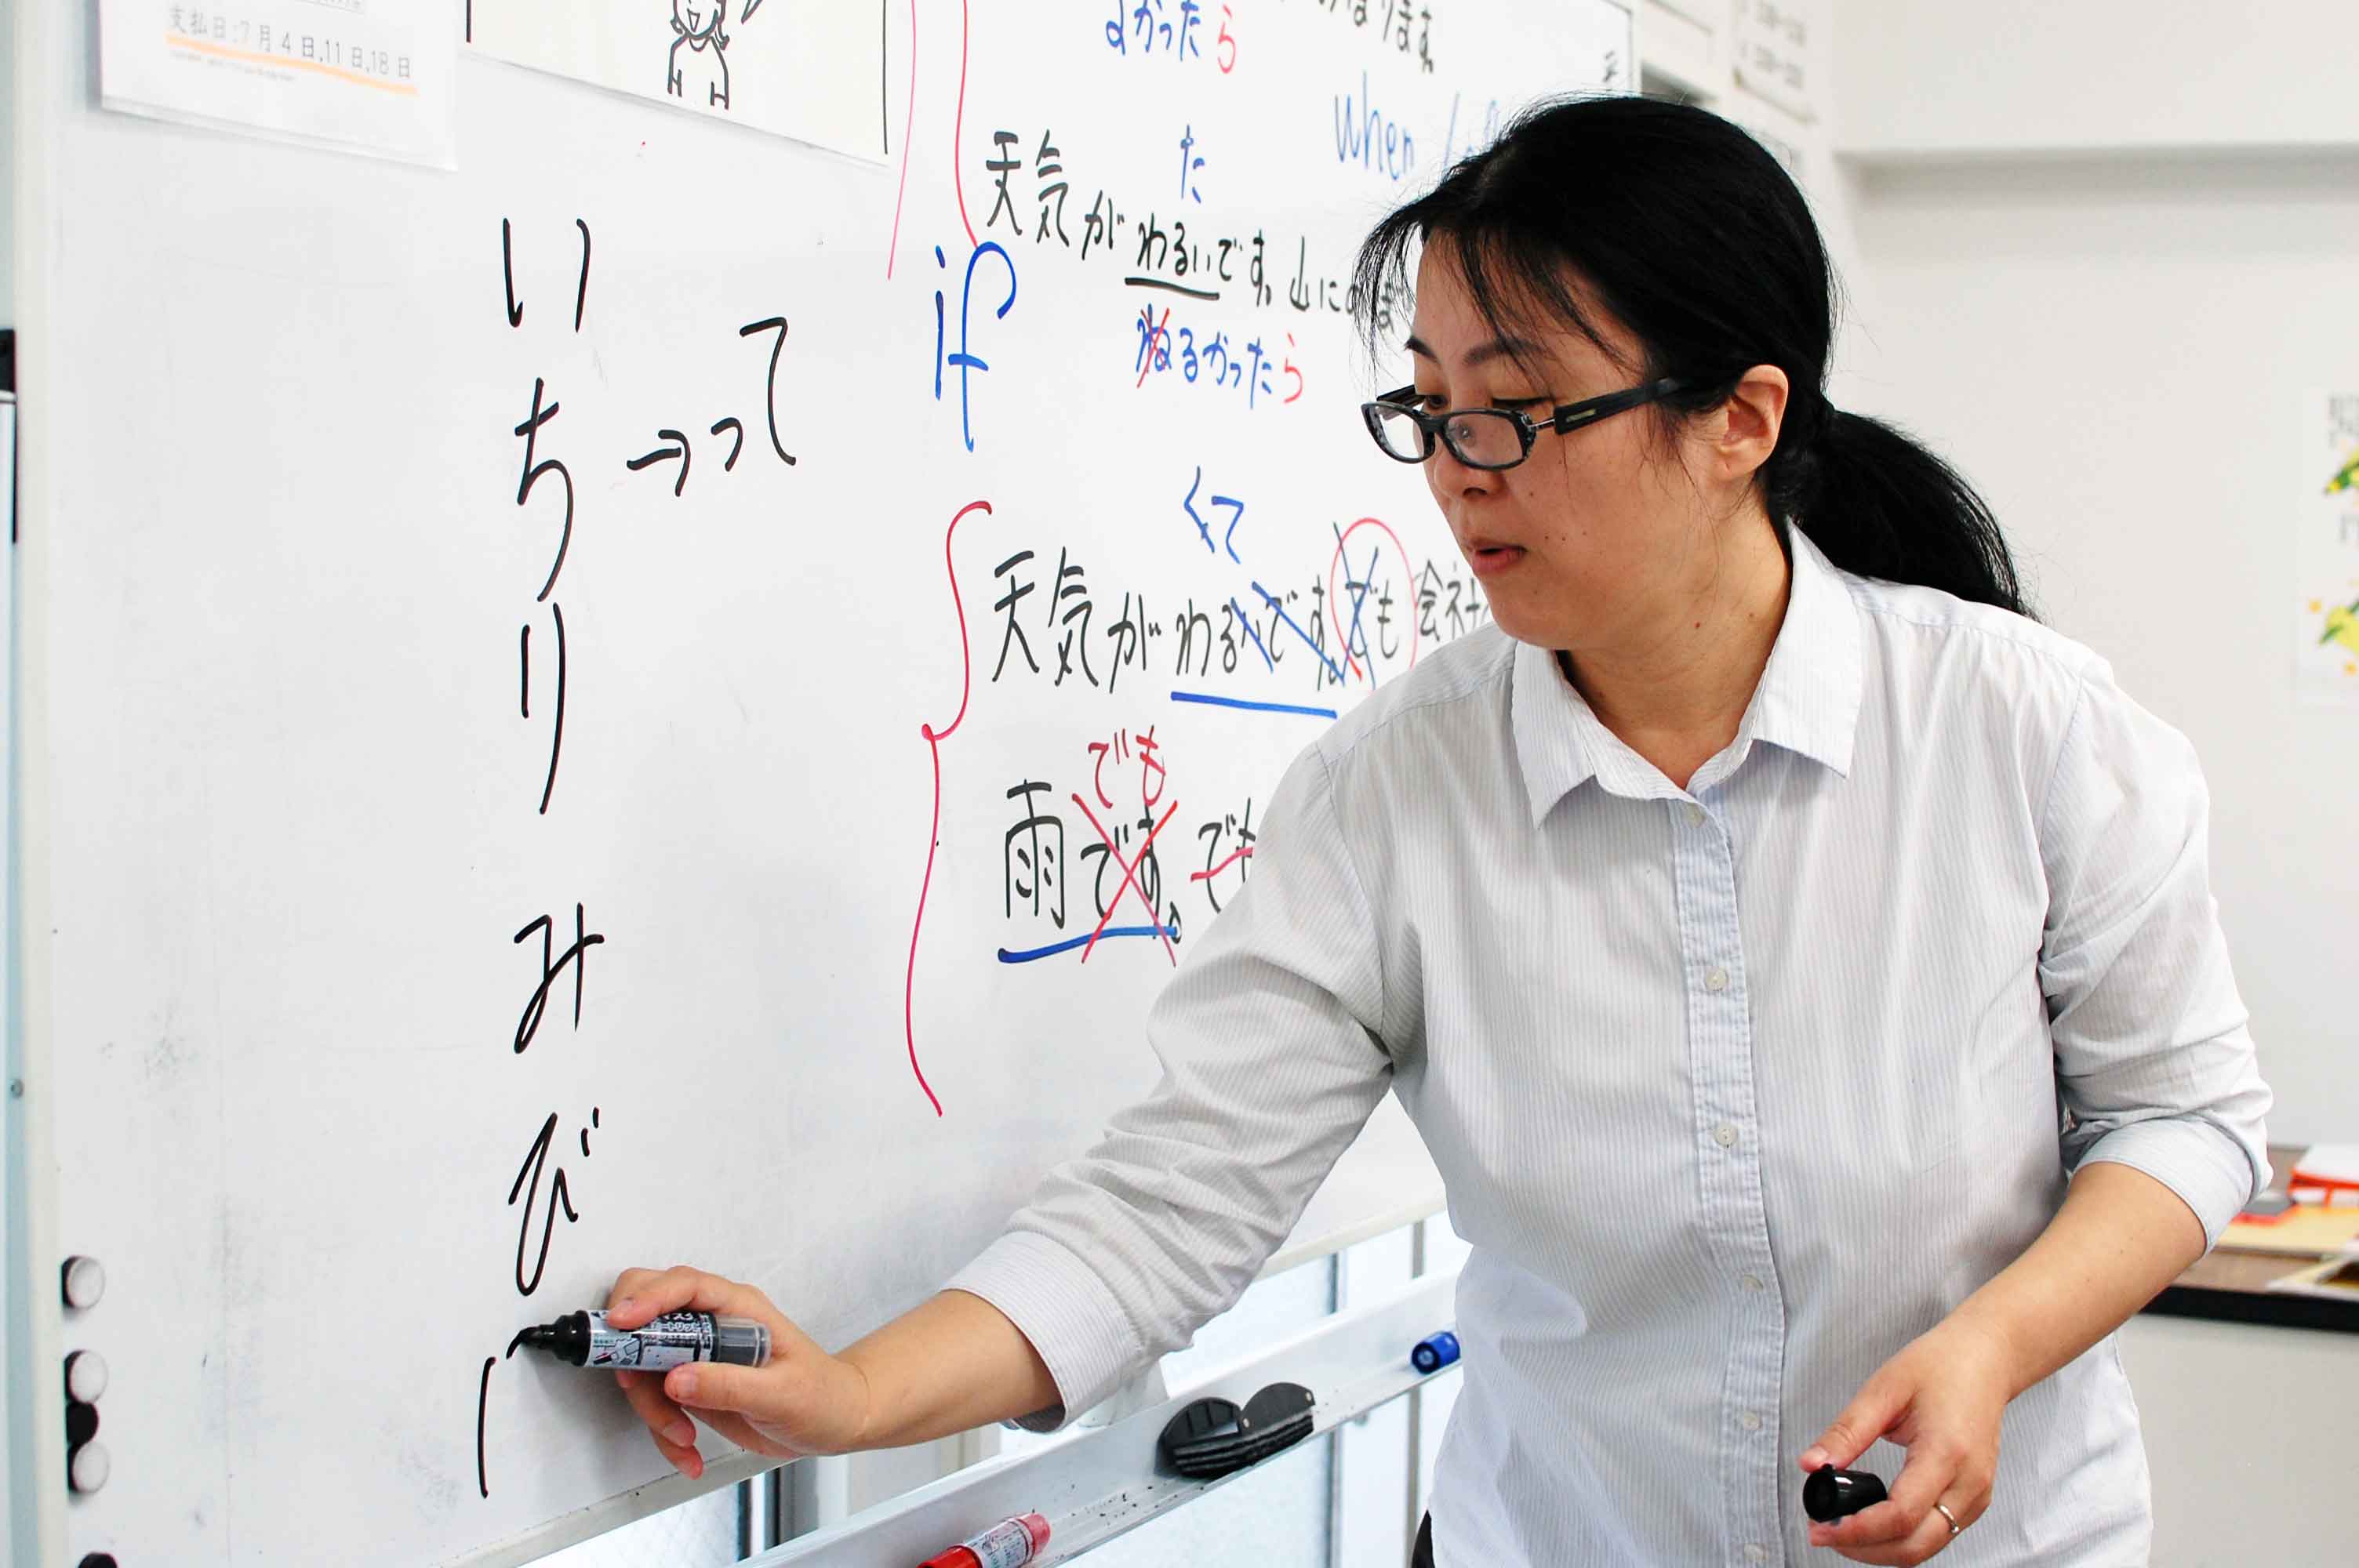 支払日:7月4日,11日,18日
い
ち→って
り
み
び
よかったら
ります。
when
た
天気がわるいです。山に
if
わるかったら
くて
天気がわるいです。でも会社
でも
雨です。でも